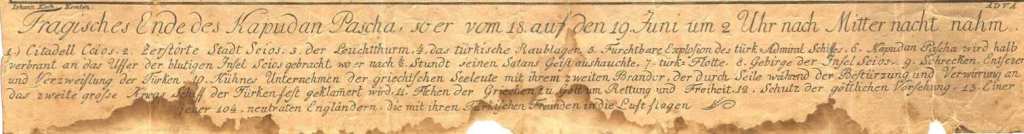 Johann Koch Kemten. ADVA
Tragisches Ende des Kapudan Pascha, so er vom 18. auf den 19. Juni um 2 Uhr nach Mitternacht nahm.
1.) Citadell Scios. 2. Zerstörte Stadt Scios. 3. der Leuchtthurm. 4. das türkische Raublager. 5. Furchtbare Explosion des türk. Admiral Schiffes. 6. Kapudan Pascha wird halb
verbrant an das Uffer der blutigen Insel Scios gebracht, wo er nach ½ Stundt seinen Satans Geist aushauchte. 7. türk. Flotte. 8. Gebirge der Insel Scios. 9. Schrecken, Entsezen
und Verzweiflung der Türken. 10. Kühnes Unternehmen der griechischen Seeleute mit ihrem zweiten Brander, der durch Seile während der Bestürzung und Verwirrung an
das zweite große Kriegs Schiff der Türken fest geklamert wird. 11. Flehen der Griechen zu Gott um Rettung und Freiheit. 12. Schutz der göttlichen Vorsehung. 13. Einer
jener 104. neutralen Engländern, die mit ihren Türkischen Freunden in die Luft flogen